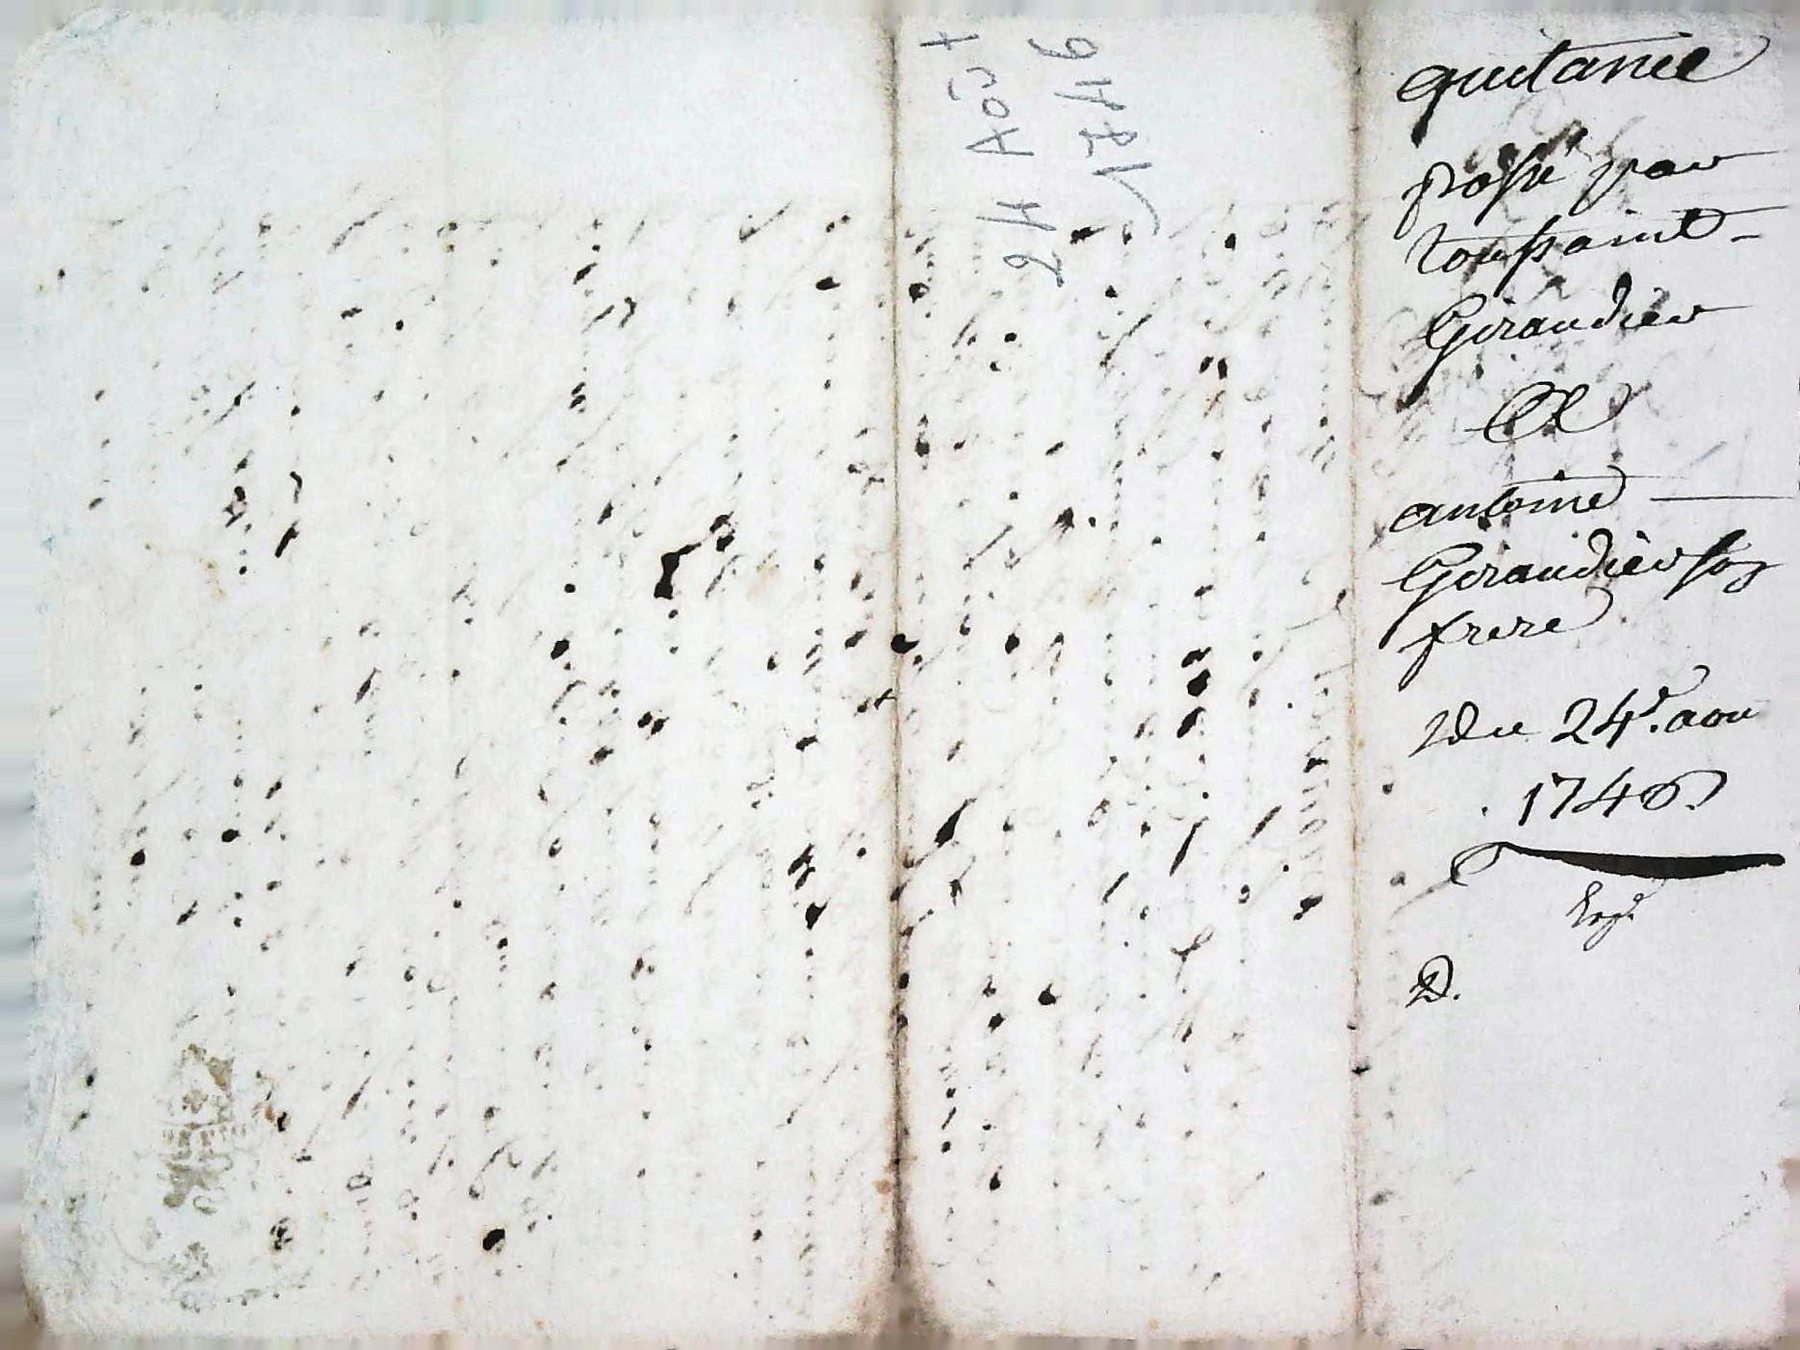 24 Août
1746
quitance
passé par
toussaint -
Giraudier
Et
antoine —
Giraudier son
frere
Du 24e. aou
1746
Exp.
D.